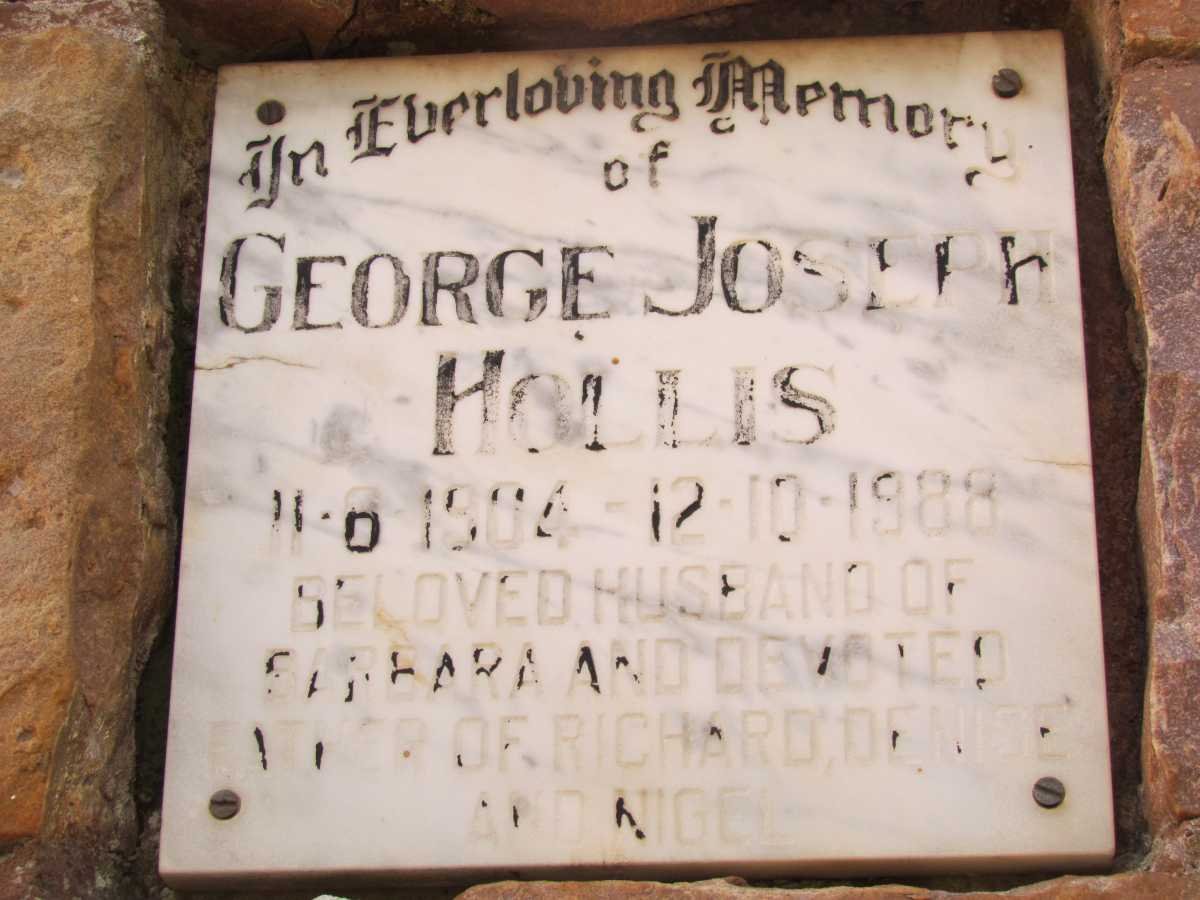 In Everloving Memory
of
GEORGE JOSEPH
HOLLIS
11·6·1904 - 12·10·1988
BELOVED HUSBAND OF
BARBARA AND DEVOTED
FATHER OF RICHARD, DENISE
AND NIGEL